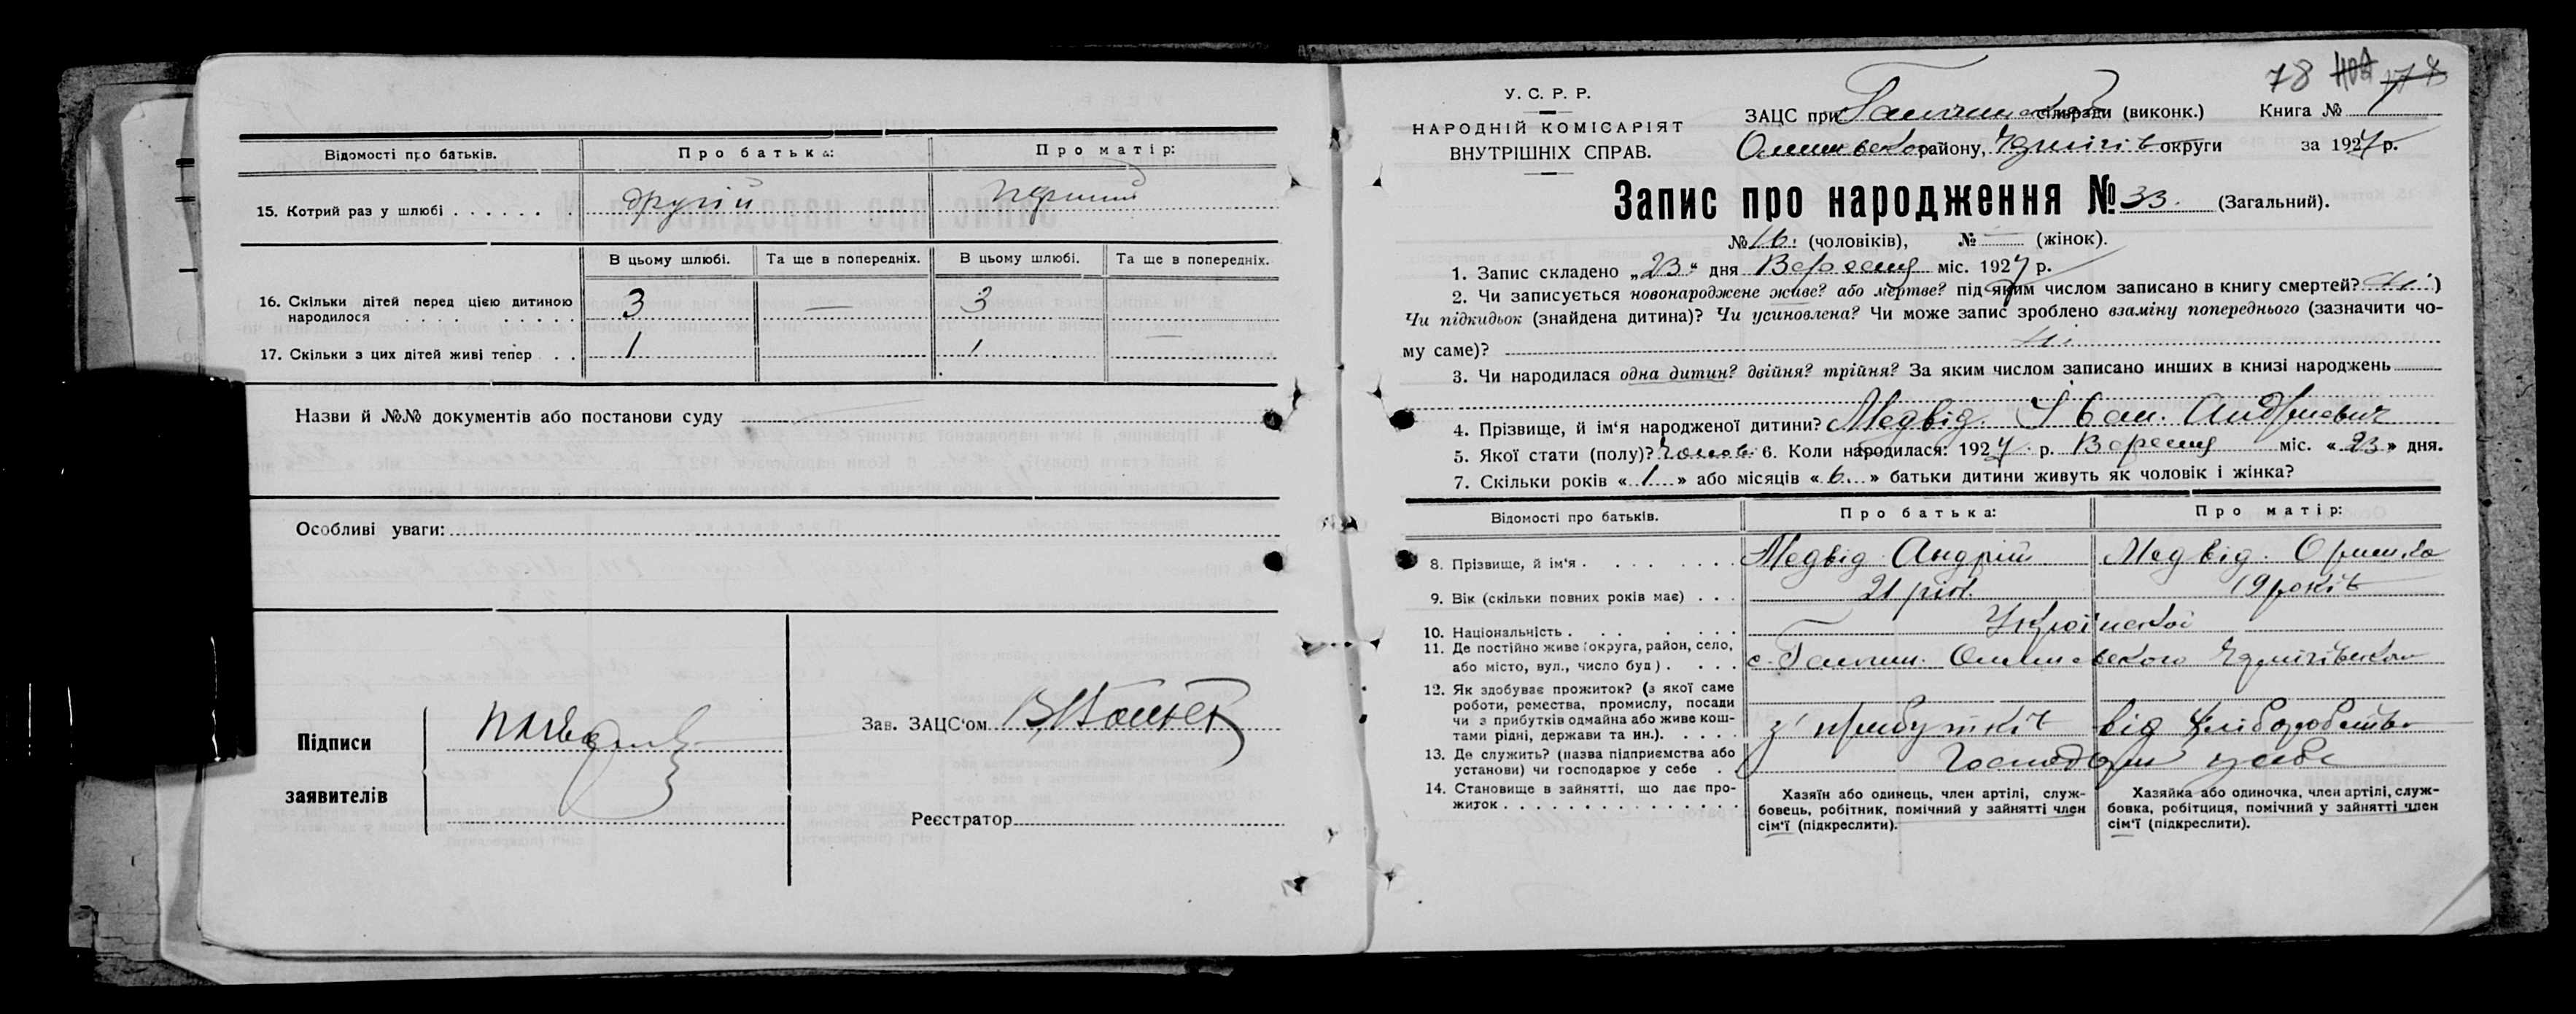 Відомості про батьків. Про батька: Про матір:
15. Котрий раз у шлюбі . . . . . . . другій перший
В цьому шлюбі. Та ще в попередніх. В цьому шлюбі. Та ще в попередніх.
16. Скільки дітей перед цією дитиною
народилося . . . . . . . . . 3 — 3
17. Скільки з цих дітей живі тепер . . 1 1 —
Назви й №№ документів або постанови суду
Особливі уваги:
Підписи
заявителів
Зав. ЗАЦС'ом
Реєстратор
78
У. С. Р. Р.
НАРОДНІЙ КОМІСАРІЯТ
ВНУТРІШНІХ СПРАВ.
ЗАЦС при сільради (виконк.) Книга № 1
району, округи за 1927 р.
Запис про народження № 33. (Загальний).
№ 16. (чоловіків), № — (жінок).
1. Запис складено „23“ дня Вересня міс. 1927 р.
2. Чи записується новонароджене живе? або мертве? під яким числом записано в книгу смертей? ні)
Чи підкидьок (знайдена дитина)? Чи усиновлена? Чи може запис зроблено взаміну попереднього (зазначити чо-
му саме)? ні
3. Чи народилася одна дитин? двійня? трійня? За яким числом записано инших в книзі народжень
4. Прізвище, й ім'я народженої дитини? Медвід. Іван. Андрієвич
5. Якої стати (полу)? Чолов. 6. Коли народилася: 1927 р. Вересня міс. «23» дня.
7. Скільки років «1» або місяців «6.» батьки дитини живуть як чоловік і жінка?
Відомості про батьків. Про батька: Про матір:
8. Прізвище, й ім'я . . . . . . . Медвід Андрій Медвід
9. Вік (скільки повних років має) . . . 21 рік. 19 років
10. Національність . . . . . . . Української
11. Де постійно живе (округа, район, село,
або місто, вул., число буд) . . . . с.
12. Як здобуває прожиток? (з якої саме
роботи, ремества, промислу, посади
чи з прибутків одмайна або живе кош-
тами рідні, держави та ин.). . . . . з прибутків від хліборобства
13. Де служить? (назва підприємства або
установи) чи господарює у себе . . Господарш у себе
14. Становище в зайнятті, що дає про-
житок . . . . . . . . . . . . . .
Хазяїн або одинець, член артілі, служ-
бовець, робітник, помічний у зайнятті член
сім'ї (підкреслити).
Хазяйка або одиночка, член артілі, служ-
бовка, робітциця, помічний у зайнятті член
сім'ї (підкреслити).